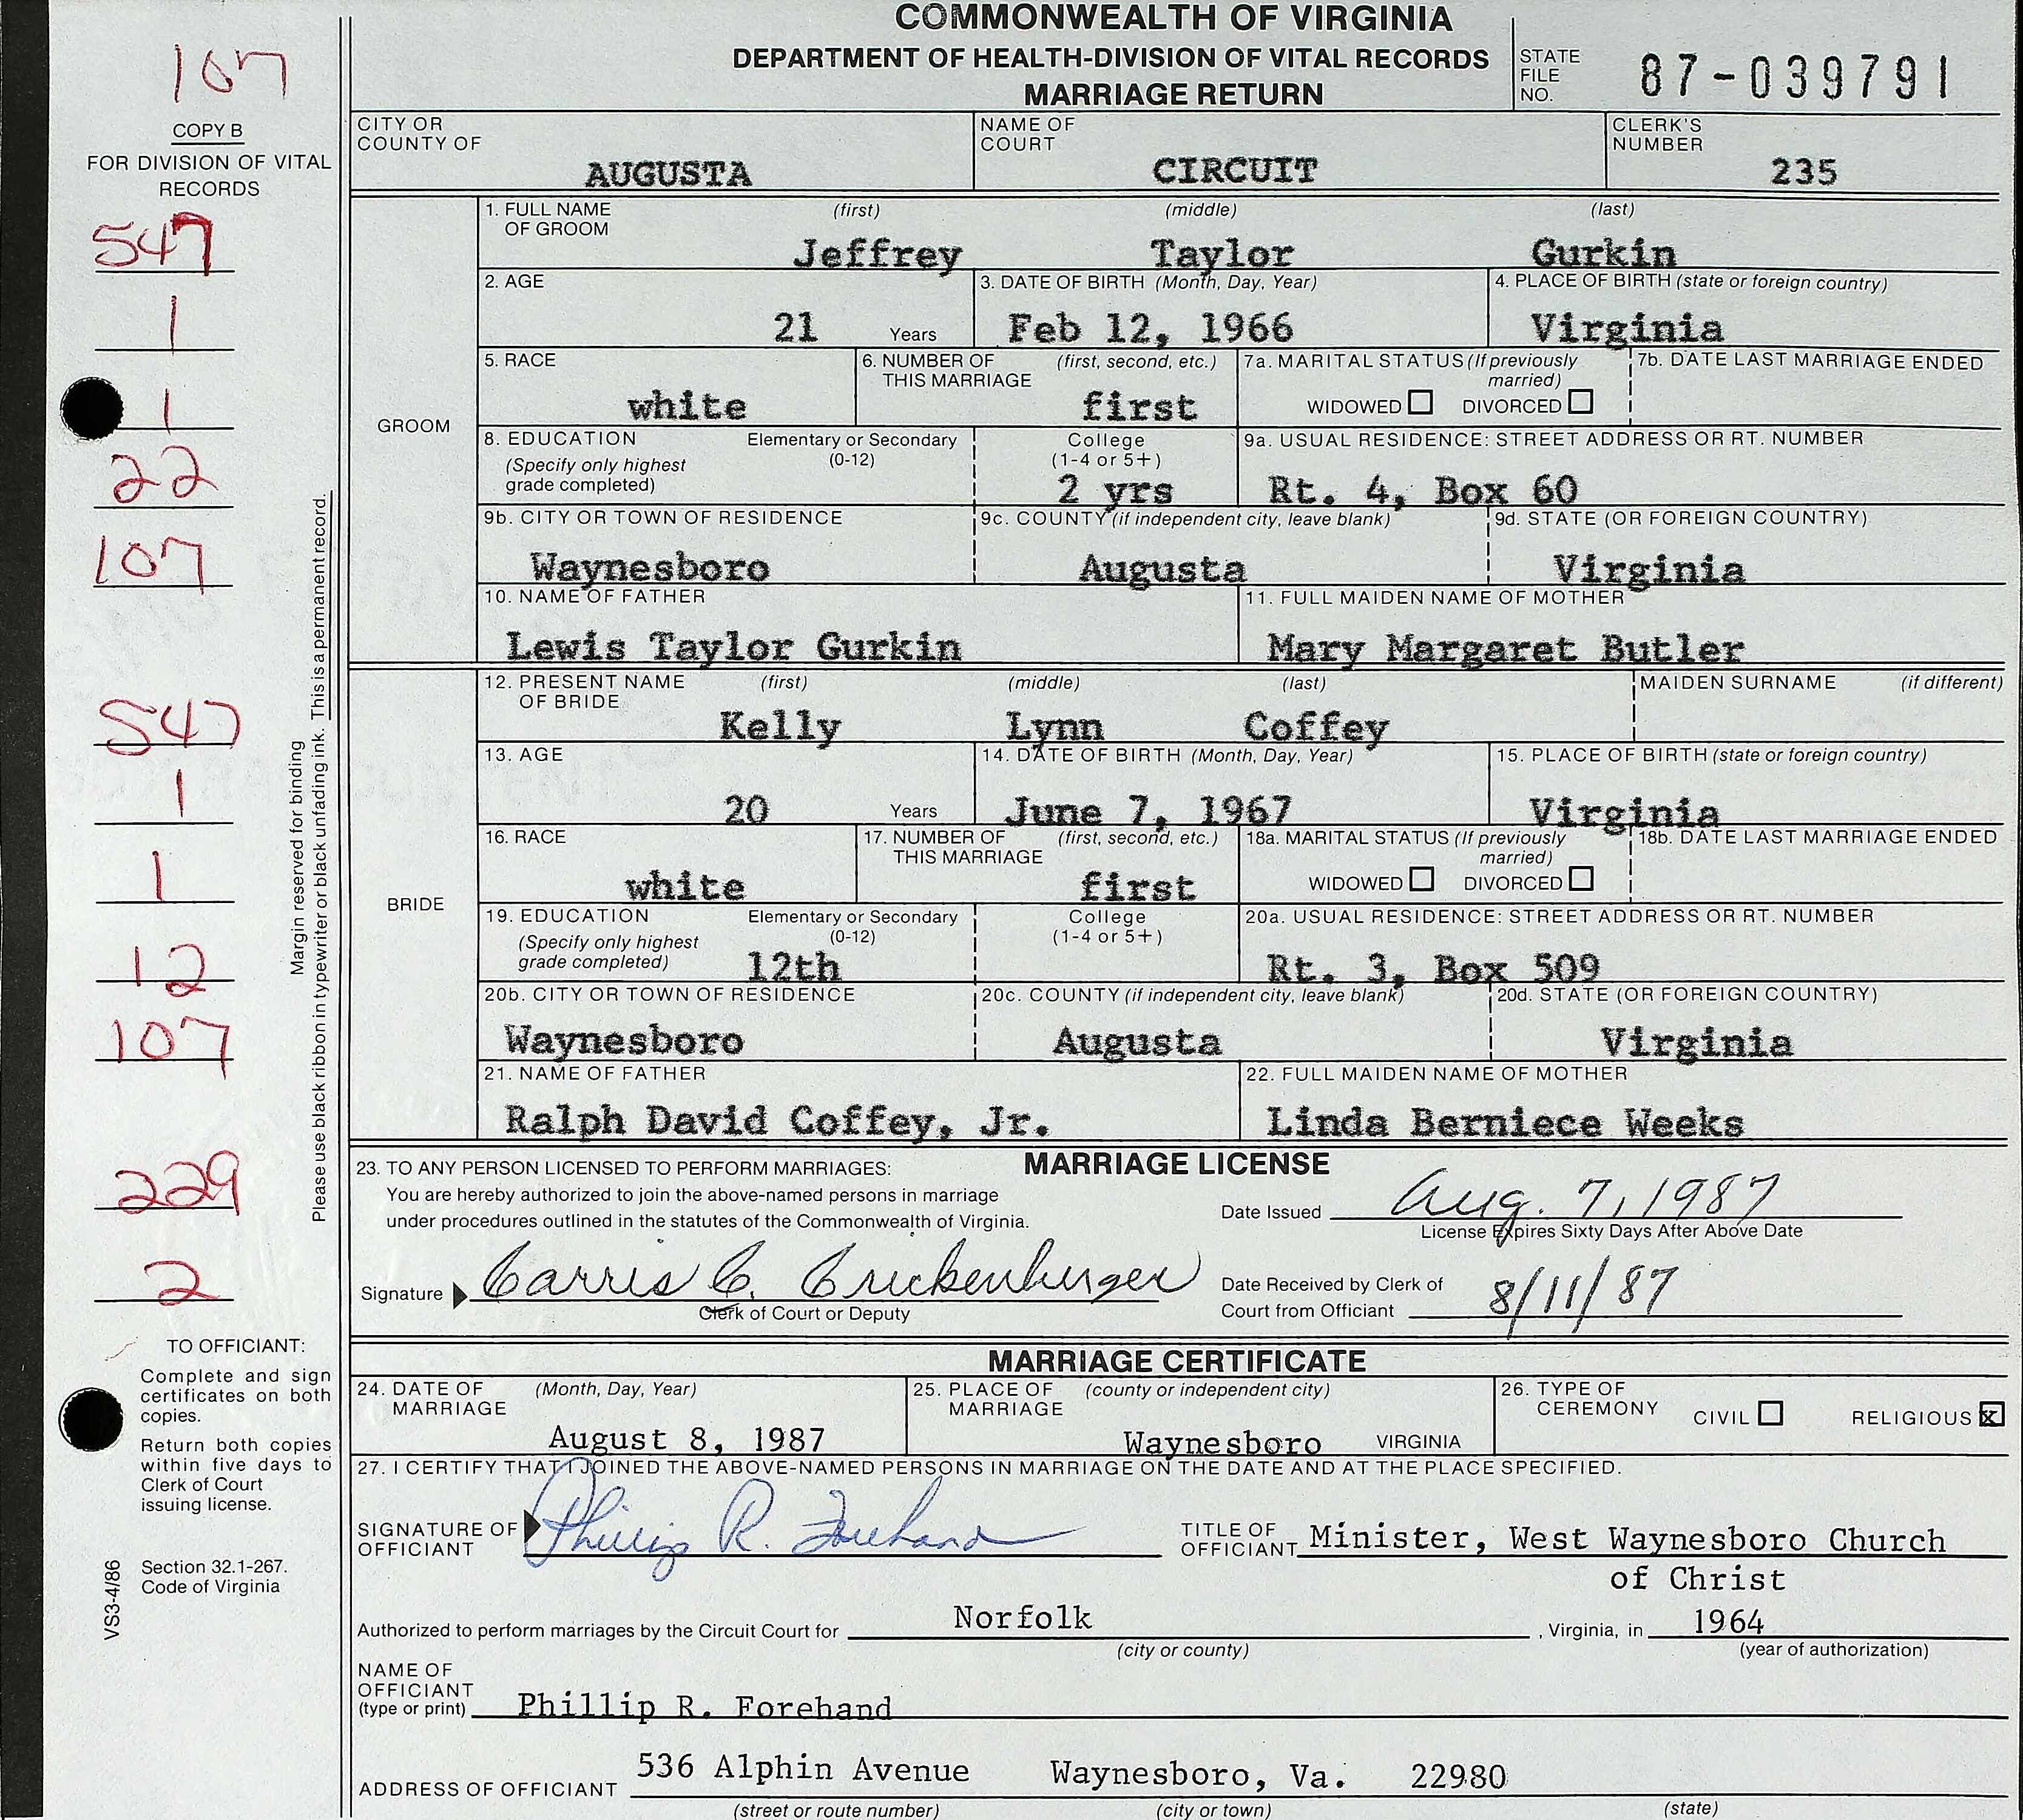 COMMONWEALTH OF VIRGINIA
DEPARTMENT OF HEALTH-DIVISION OF VITAL RECORDS
MARRIAGE RETURN
STATE FILE NO. 87-039791
107
COPY B
FOR DIVISION OF VITAL RECORDS
547
1
1
22
107
547
1
1
12
107
229
2
Margin reserved for binding
Please use black ribbon in typewriter or black unfading ink. This is a permanent record.
TO OFFICIANT:
Complete and sign
certificates on both
copies.
Return both copies
within five days to
Clerk of Court
issuing license.
Section 32.1-267.
Code of Virginia
VS3-4/86
CITY OR COUNTY OF AUGUSTA
NAME OF COURT CIRCUIT
CLERK'S NUMBER 235
GROOM
1. FULL NAME OF GROOM (first) (middle) (last)
Jeffrey Taylor Gurkin
2. AGE 21 Years
3. DATE OF BIRTH (Month, Day, Year) Feb 12, 1966
4. PLACE OF BIRTH (state or foreign country) Virginia
5. RACE white
6. NUMBER OF THIS MARRIAGE (first, second, etc.) first
7a. MARITAL STATUS (If previously married) WIDOWED DIVORCED
7b. DATE LAST MARRIAGE ENDED
8. EDUCATION (Specify only highest grade completed) Elementary or Secondary (0-12) College (1-4 or 5+) 2 yrs
9a. USUAL RESIDENCE: STREET ADDRESS OR RT. NUMBER Rt. 4, Box 60
9b. CITY OR TOWN OF RESIDENCE Waynesboro
9c. COUNTY (if independent city, leave blank) Augusta
9d. STATE (OR FOREIGN COUNTRY) Virginia
10. NAME OF FATHER Lewis Taylor Gurkin
11. FULL MAIDEN NAME OF MOTHER Mary Margaret Butler
BRIDE
12. PRESENT NAME OF BRIDE (first) (middle) (last) MAIDEN SURNAME (if different)
Kelly Lynn Coffey
13. AGE 20 Years
14. DATE OF BIRTH (Month, Day, Year) June 7, 1967
15. PLACE OF BIRTH (state or foreign country) Virginia
16. RACE white
17. NUMBER OF THIS MARRIAGE (first, second, etc.) first
18a. MARITAL STATUS (If previously married) WIDOWED DIVORCED
18b. DATE LAST MARRIAGE ENDED
19. EDUCATION (Specify only highest grade completed) Elementary or Secondary (0-12) 12th College (1-4 or 5+)
20a. USUAL RESIDENCE: STREET ADDRESS OR RT. NUMBER Rt. 3, Box 509
20b. CITY OR TOWN OF RESIDENCE Waynesboro
20c. COUNTY (if independent city, leave blank) Augusta
20d. STATE (OR FOREIGN COUNTRY) Virginia
21. NAME OF FATHER Ralph David Coffey, Jr.
22. FULL MAIDEN NAME OF MOTHER Linda Berniece Weeks
MARRIAGE LICENSE
23. TO ANY PERSON LICENSED TO PERFORM MARRIAGES:
You are hereby authorized to join the above-named persons in marriage
under procedures outlined in the statutes of the Commonwealth of Virginia.
Date Issued Aug. 7, 1987
License Expires Sixty Days After Above Date
Signature Carris C. Crickenberger
Clerk of Court or Deputy
Date Received by Clerk of Court from Officiant 8/11/87
MARRIAGE CERTIFICATE
24. DATE OF MARRIAGE (Month, Day, Year) August 8, 1987
25. PLACE OF MARRIAGE (county or independent city) Waynesboro VIRGINIA
26. TYPE OF CEREMONY CIVIL RELIGIOUS x
27. I CERTIFY THAT I JOINED THE ABOVE-NAMED PERSONS IN MARRIAGE ON THE DATE AND AT THE PLACE SPECIFIED.
SIGNATURE OF OFFICIANT Phillip R. Forehand
TITLE OF OFFICIANT Minister, West Waynesboro Church
of Christ
Authorized to perform marriages by the Circuit Court for Norfolk, Virginia, in 1964
(city or county) (year of authorization)
NAME OF OFFICIANT (type or print) Phillip R. Forehand
ADDRESS OF OFFICIANT 536 Alphin Avenue Waynesboro, Va. 22980
(street or route number) (city or town) (state)